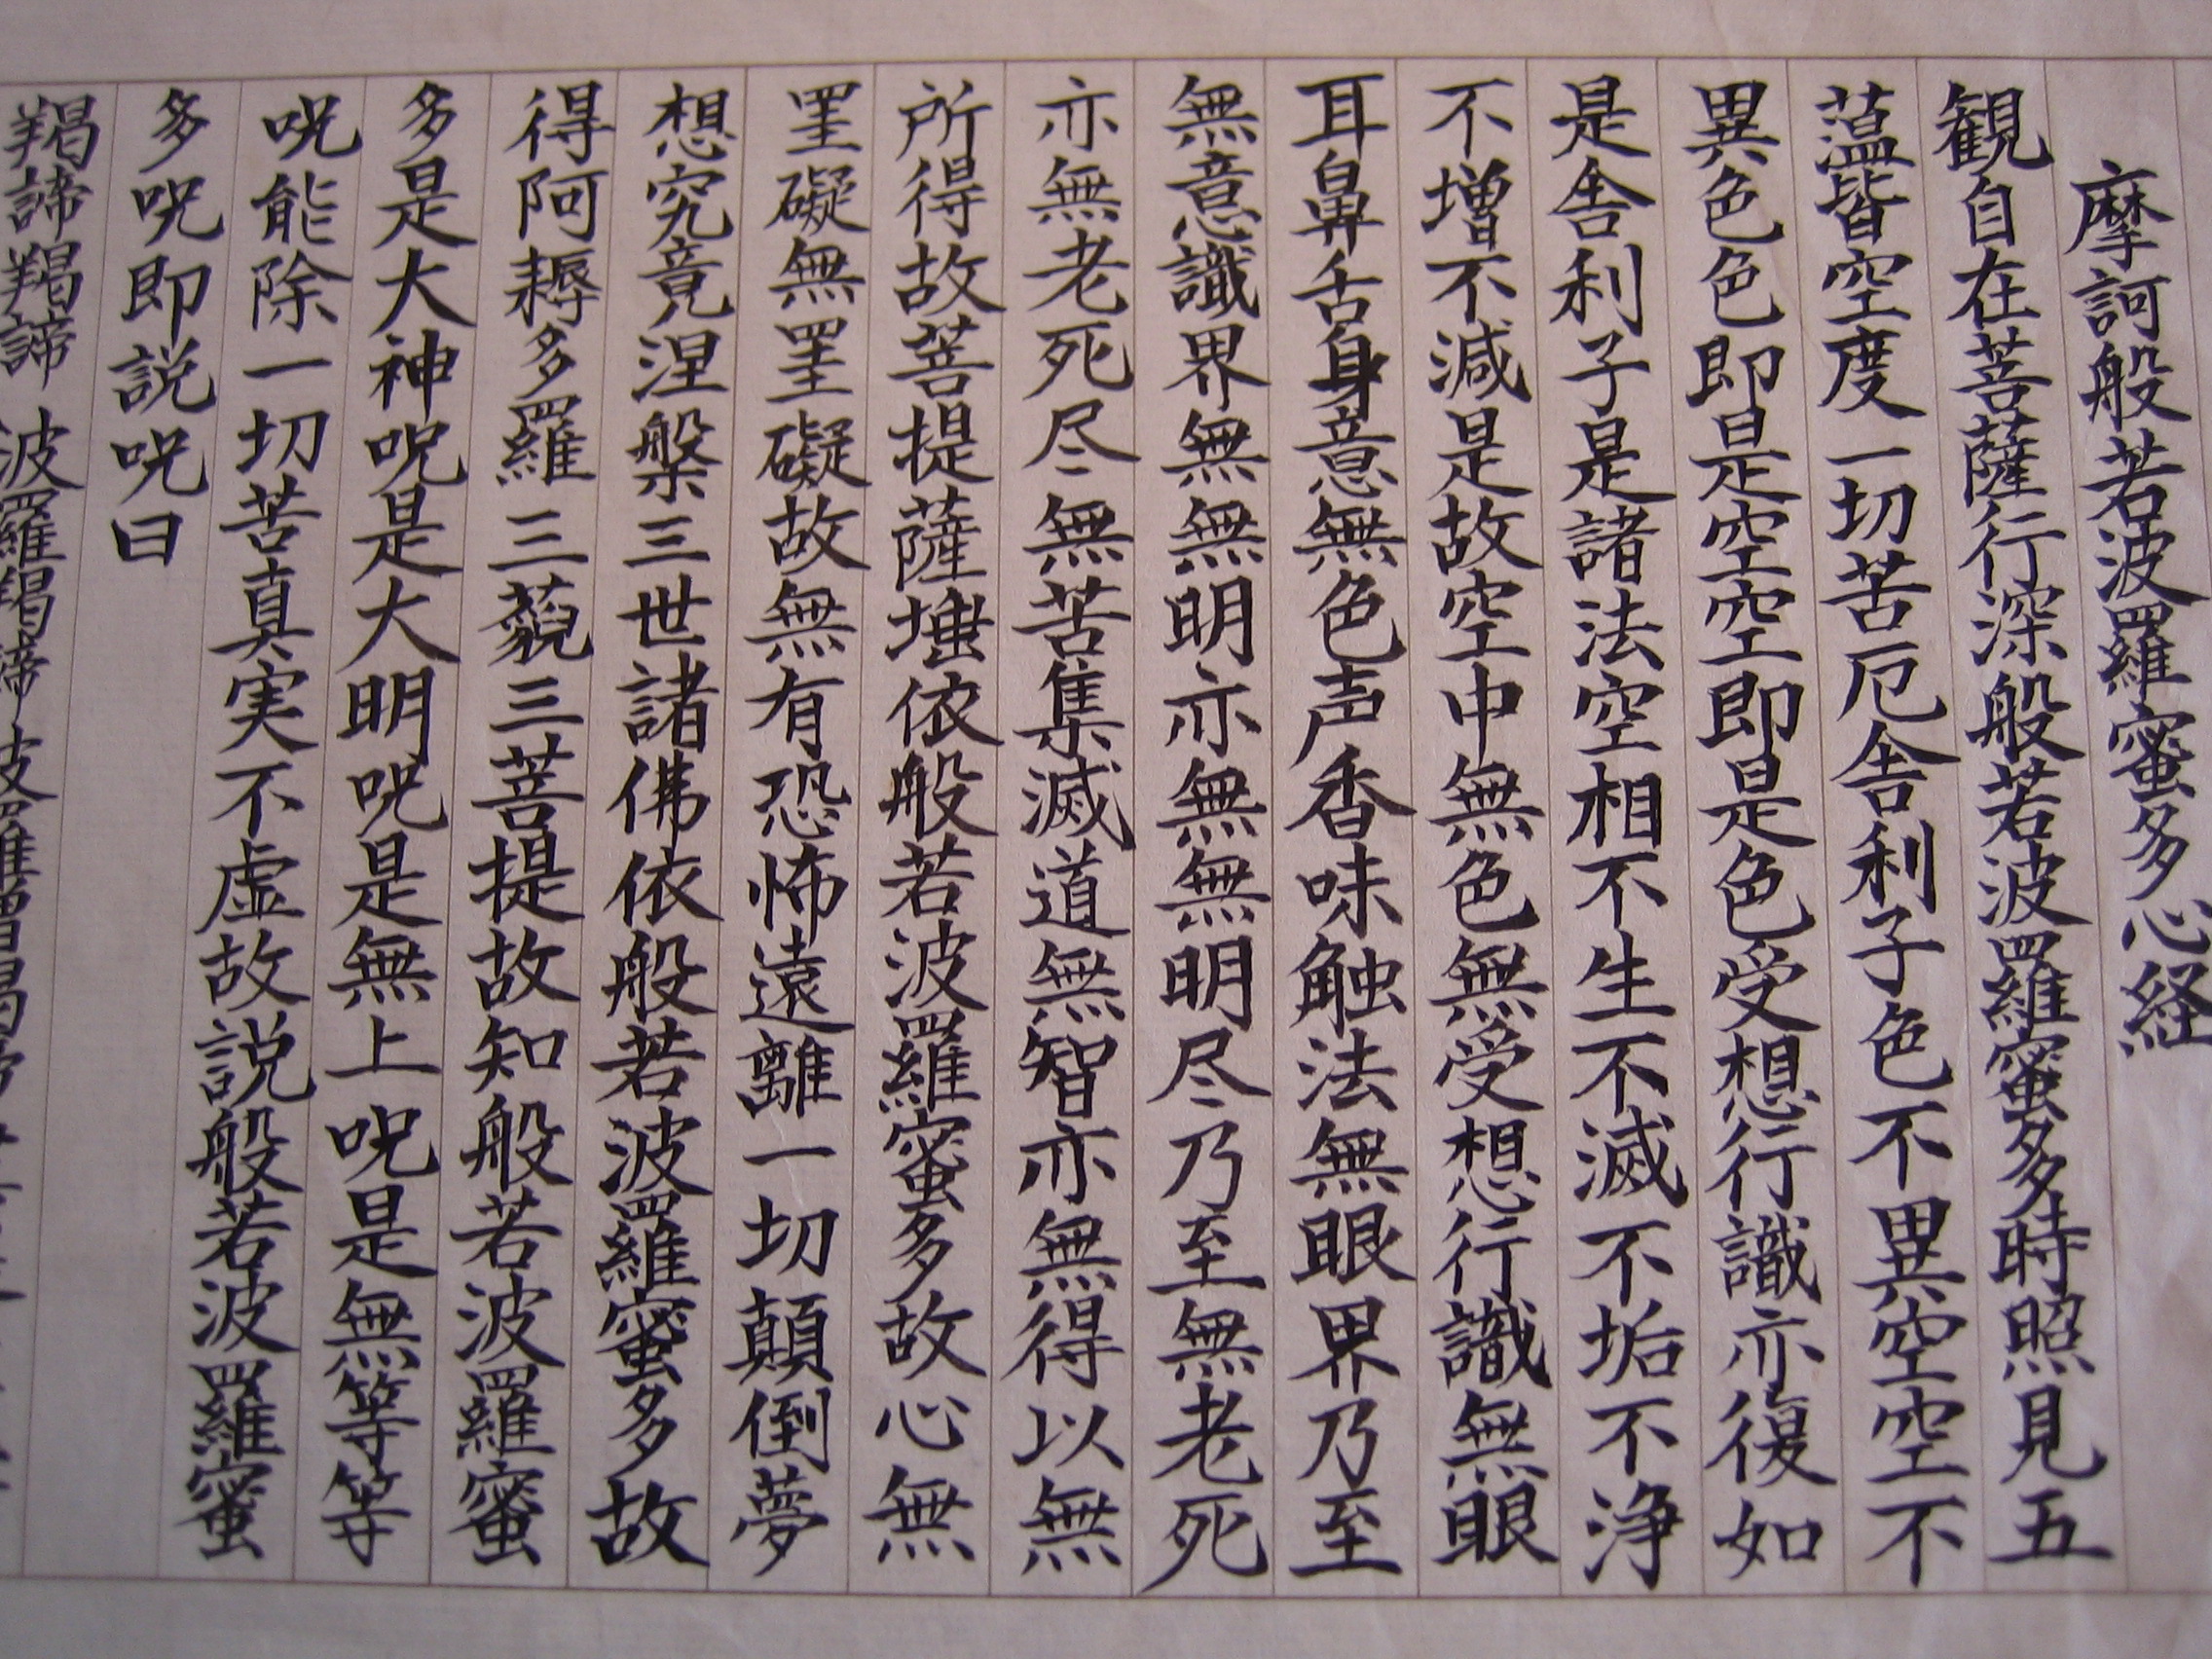 摩訶般若波羅蜜多心経
観自在菩薩行深般若波羅蜜多時照見五
蕰皆空度一切苦厄舎利子色不異空空不
異色色即是空空即是色受想行識亦復如
是舎利子是諸法空相不生不滅不垢不浄
不増不減是故空中無色無受想行識無眼
耳鼻舌身意無色声香味触法無眼界乃至
無意識界無無明亦無無明尽乃至無老死
亦無老死尽無苦集滅道無智亦無得以無
所得故菩提薩埵依般若波羅蜜多故心無
罣礙無罣礙故無有恐怖遠離一切顛倒夢
想究竟涅槃三世諸佛依般若波羅蜜多故
得阿耨多羅三藐三菩提故知般若波羅蜜
多是大神呪是大明呪是無上呪是無等等
呪能除一切苦真実不虚故説般若波羅蜜
多呪即説呪曰
羯諦羯諦波羅羯諦波羅僧羯諦